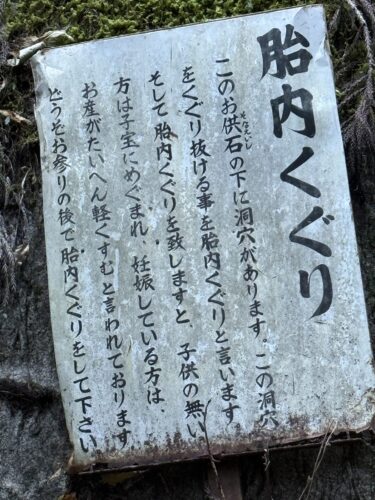 胎内くぐり
このお供石の下に洞穴があります。この洞穴
そなえいし
をくぐり抜ける事を胎内くぐりと言います
そして胎内くぐりを致しますと、子供の無い
方は子宝にめぐまれ、妊娠している方は、
お産がたいへん軽くすむと言われております
どうぞお参りの後で胎内くぐりをして下さい